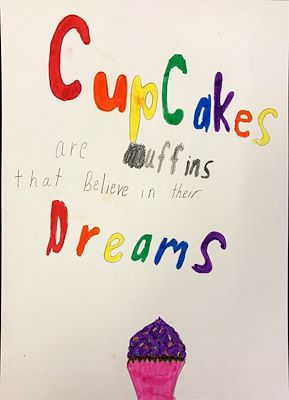 CupCakes
are muffins
that Believe in their
Dreams